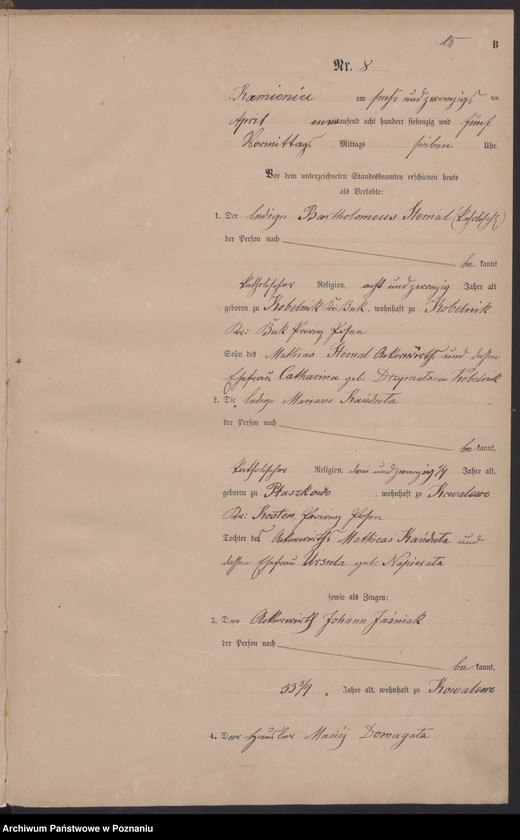 15
B
Nr. 8
Kamieniec am sechs und zwanzigs ten
April ein tausend acht hundert siebenzig und fünf
Vormittags Mittags sieben Uhr.
Vor dem unterzeichneten Standesbeamten erschienen heute
als Verlobte:
1. Der ledige Bartholomeus Sternal
der Person nach
be kannt
katholischer Religion, acht und zwanzig Jahre alt
geboren zu Kobelnik Kr: Buk, wohnhaft zu Kobelnik
Kr: Buk Provinz Posen
Sohn des Mathias Sternal Ackerwirths und dessen
Ehefrau Catharina geb: Drzymała in Kobelnik
2. Die ledige Mariane Kańduła
der Person nach
be kannt,
katholischer Religion, drei und zwanzig 1/4 Jahre alt,
geboren zu Ptaszkowo, wohnhaft zu Kowalewo
Kr: Kosten, Provinz Posen
Tochter des Ackerwirths Mathias Kańduła und
dessen Ehefrau Ursula geb: Napierała
sowie als Zeugen:
3. Der Ackerwirth Johann Jaśniak
der Person nach
be kannt,
33 3/4, Jahre alt, wohnhaft zu Kowalewo
4. Der Häusler Maciej Domagała
Archiwum Państwowe w Poznaniu